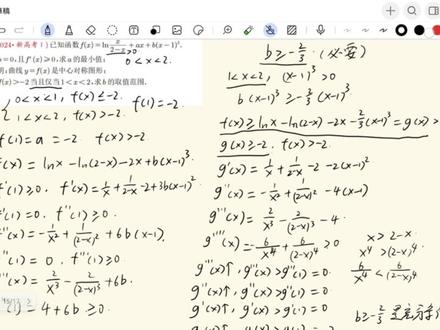 2024·新高考Ⅰ) 已知函数f(x)=ln x/(2-x) +ax+b(x-1)³.
b=0,且f'(x)≥0,求a的最小值;
明:曲线y=f(x)是中心对称图形;
f(x)>-2当且仅当1<x<2,求b的取值范围.
>0
0<x<2.
0<x≤1, f(x)≤-2
1<x<2, f(x)>-2.
f(1)=-2.
f(1)=a=-2  f(x)>-2.
f(x)=lnx-ln(2-x)-2x+b(x-1)³
f'(1)≥0. f'(x)=1/x+1/(2-x)-2+3b(x-1)²
f'(1)=0. f''(1)≥0.
f''(x)=-1/x²+1/(2-x)²+6b(x-1).
f''(1)=0. f'''(1)≥0.
f'''(x)=2/x³-2/(2-x)³+6b.
(1)=4+6b≥0.
b≥-2/3. (必要)
1<x<2, (x-1)³>0
b(x-1)³≥-2/3(x-1)³.
f(x)≥lnx-ln(2-x)-2x-2/3(x-1)³=g(x)>
g(x)≥-2. f(x)>-2.
g'(x)=1/x+1/(2-x)-2-2(x-1)²
g''(x)=-1/x²+1/(2-x)²-4(x-1)
g'''(x)=2/x³-2/(2-x)³-4.
g''''(x)=-6/x⁴+6/(2-x)⁴>0
x>2-x.
x⁴>(2-x)⁴.
6/x⁴<6/(2-x)⁴
g'''(x)↑, g'''(x)>g'''(1)=0.
g''(x)↑, g''(x)>g''(1)=0
g'(x)↑, g'(x)>g'(1)=0.
b≥-2/3